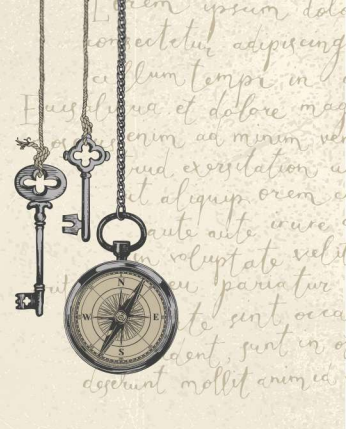 Lorem ipsum dolo
consectetur adipiscing
cillum tempr in
Euis aliqua et dolore mag
enim ad minim ven
trud exercitation u
ut aliquip orem e
aute aute irure d
in voluptate velit
eu pariatur
N
W E
S
te sint occa
dent, sunt in o
deserunt mollit anim id